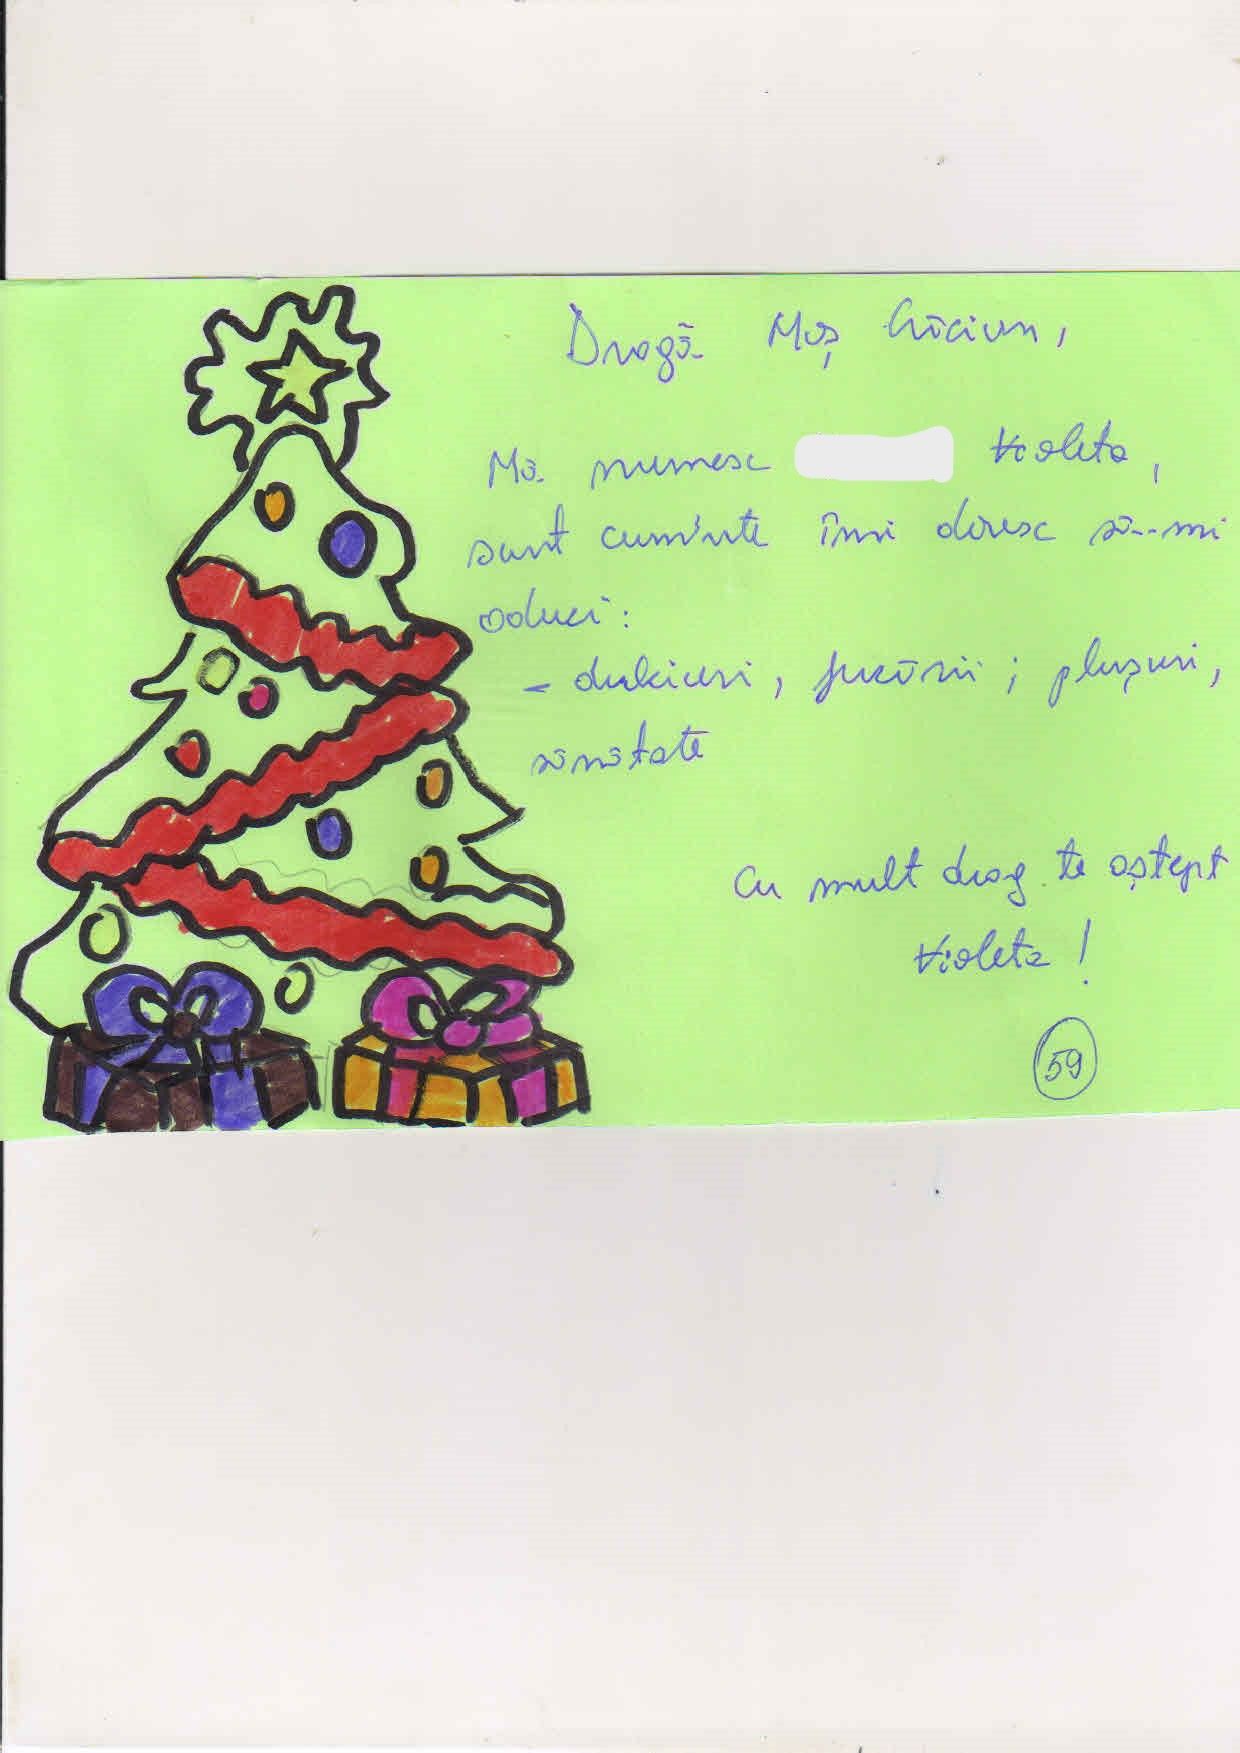 Dragă Moș Crăciun,
Mă numesc Violeta,
sunt cuminte îmi doresc să--mi
aduci:
- dulciuri, jucării; plușuri,
sănătate
Cu mult drag te aștept
Violeta!
59